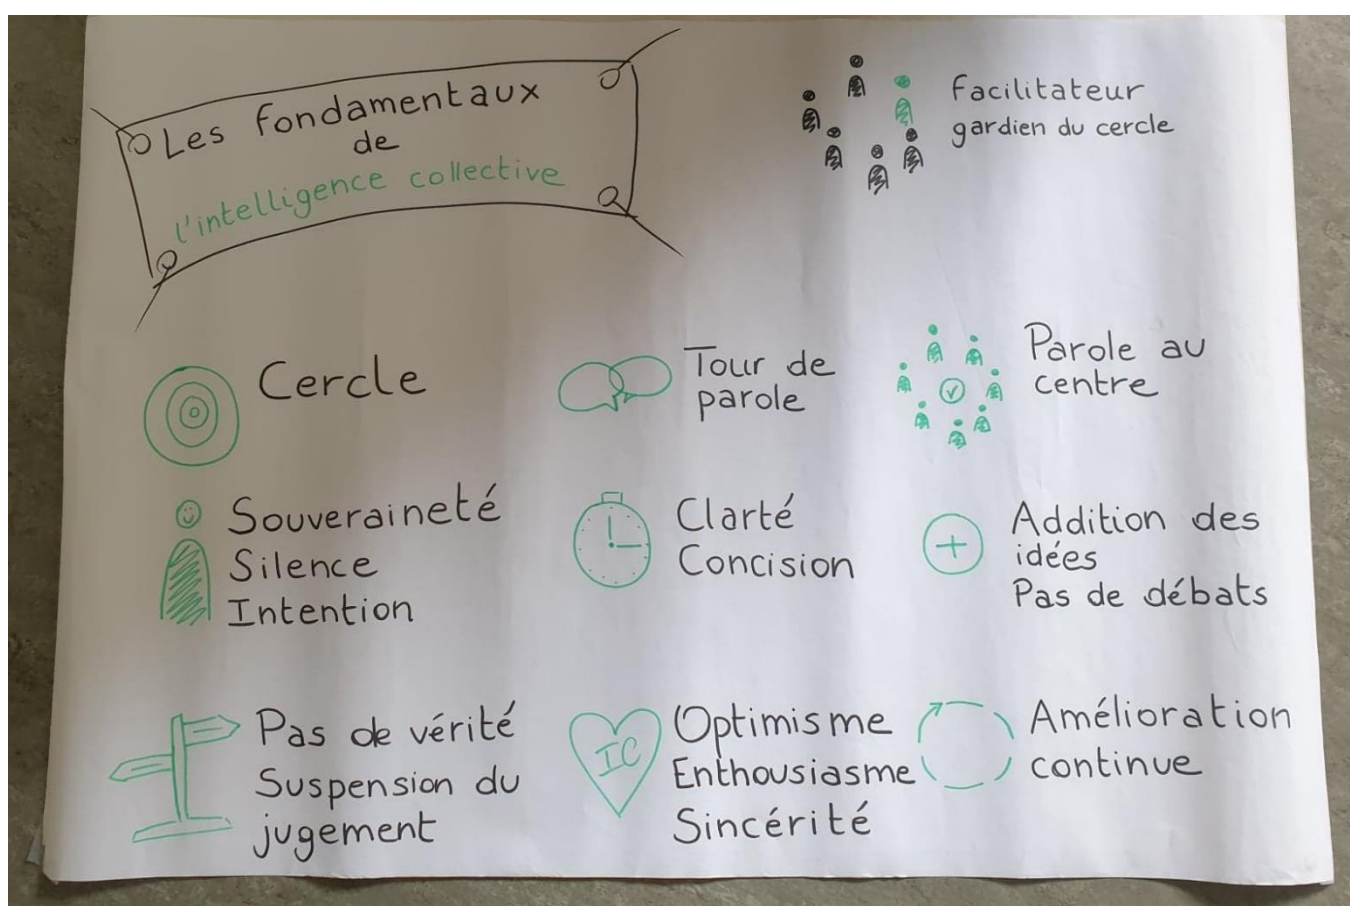 Les fondamentaux
de
l'intelligence collective
Facilitateur
gardien du cercle
Cercle
Tour de
parole
Parole au
centre
Souveraineté
Silence
Intention
Clarté
Concision
Addition des
idées
Pas de débats
Pas de vérité
Suspension du
jugement
IC
Optimisme
Enthousiasme
Sincérité
Amélioration
continue